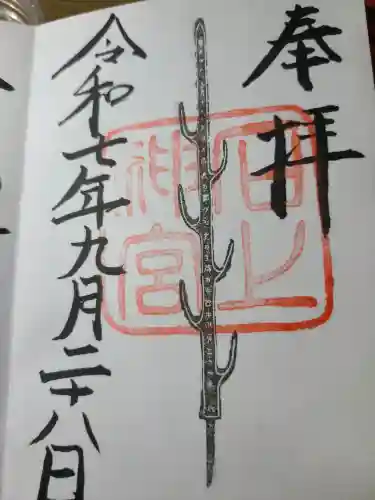 奉拝
石上
神宮
令和七年九月二十八日